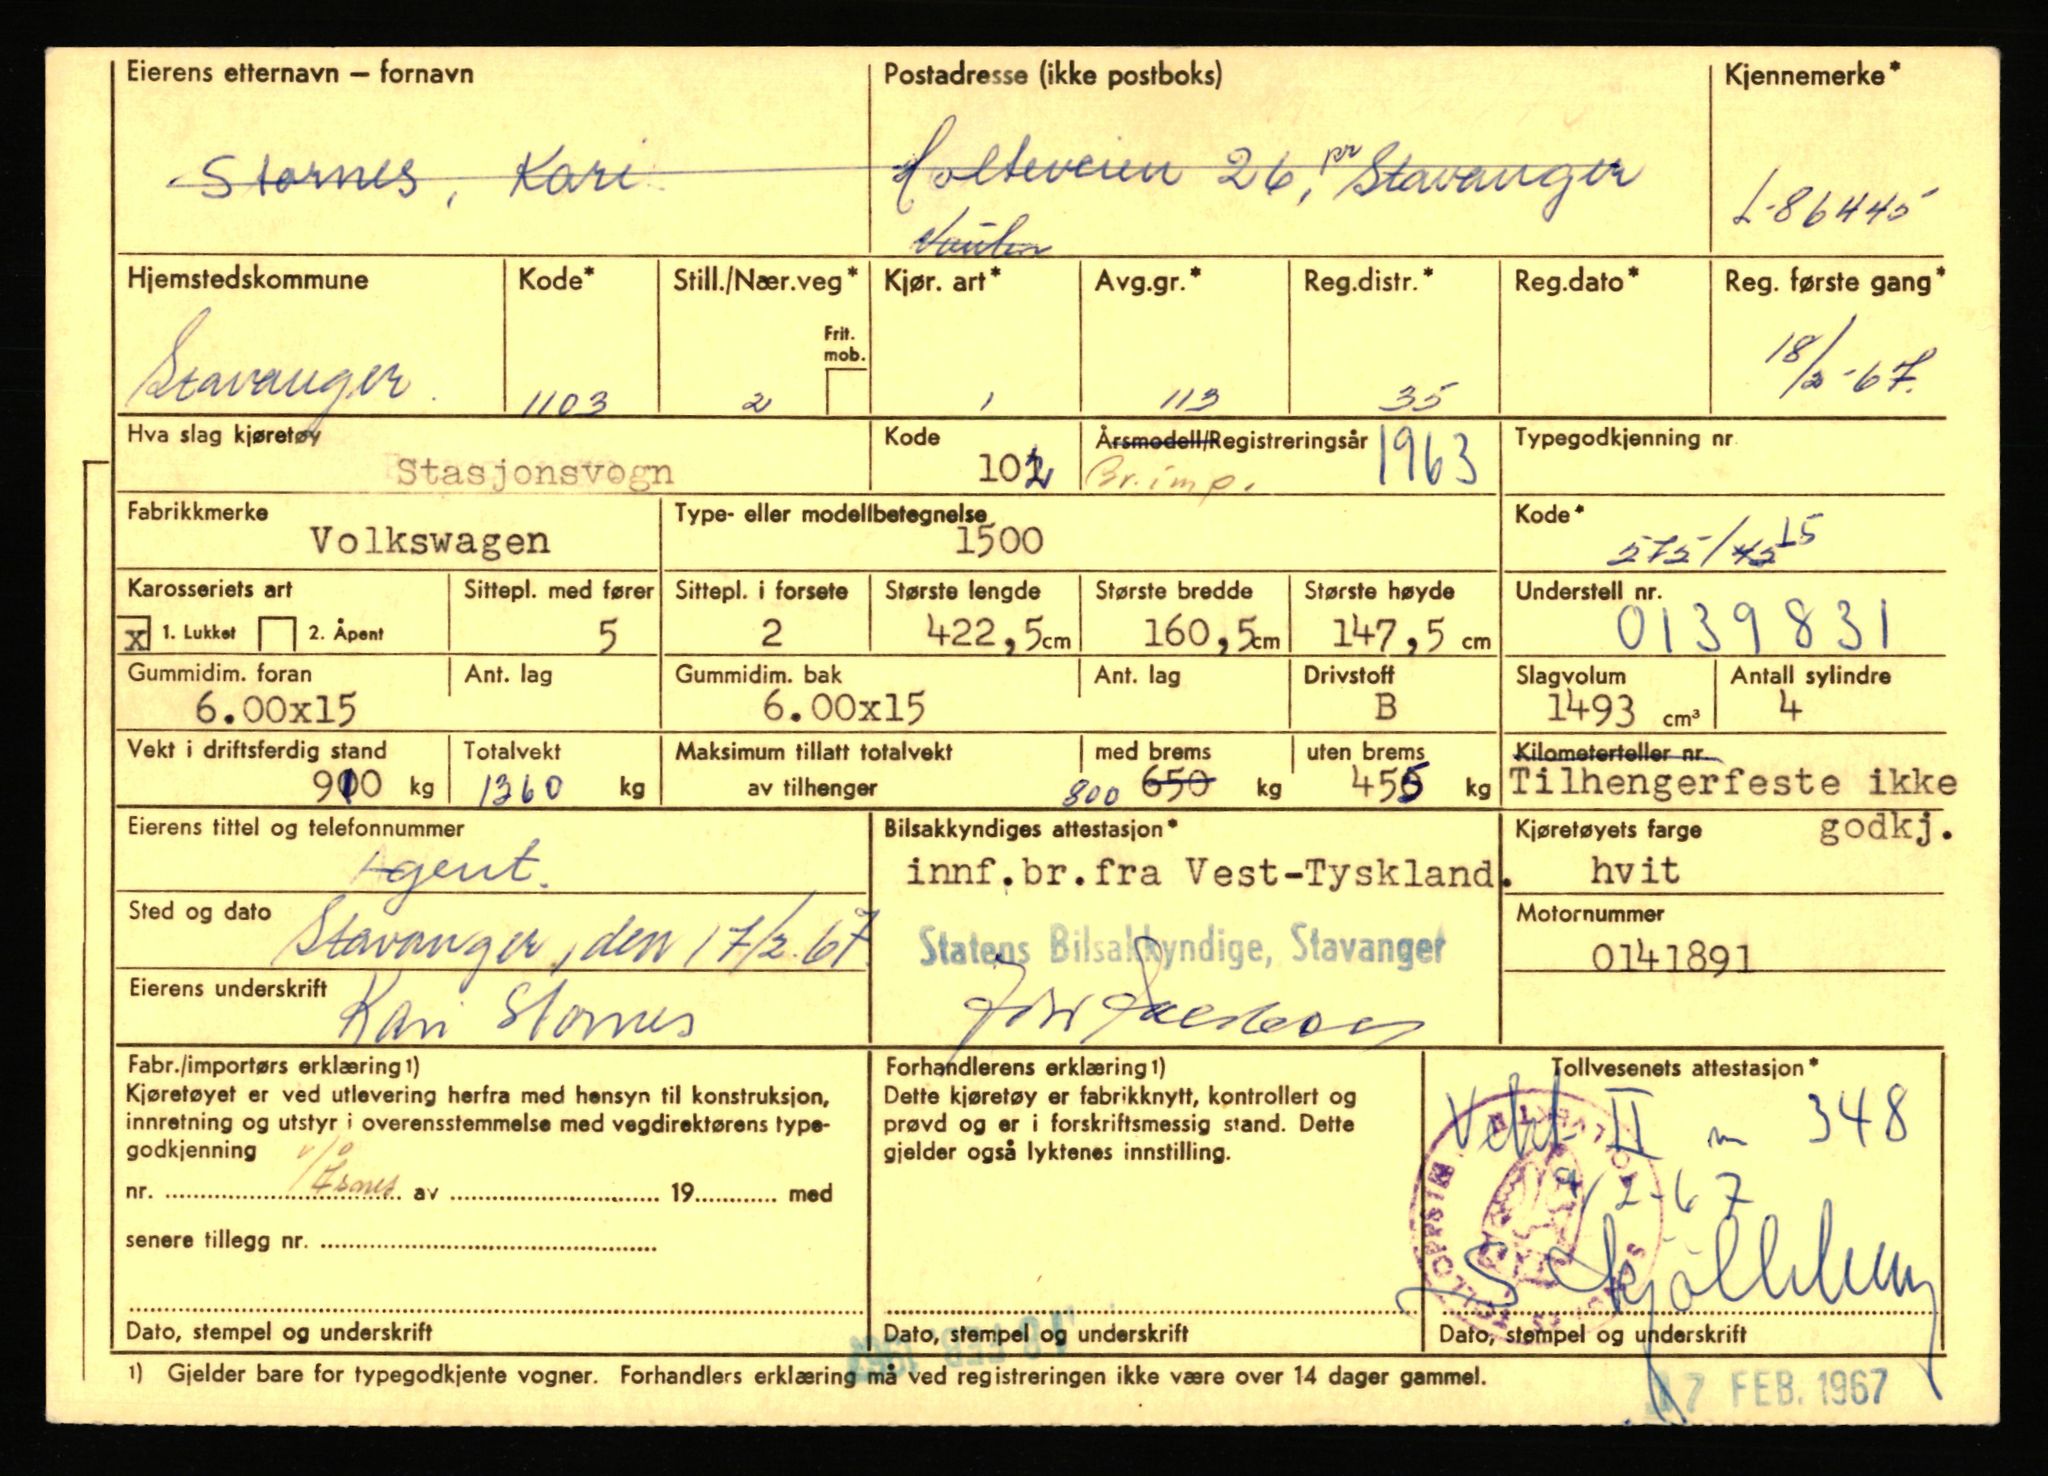 Eierens etternavn – fornavn
Postadresse (ikke postboks)
Kjennemerke*
Stornes, Kari
Holteveien 26, pr Stavanger
L-86445
Hjemstedskommune
Kode*
Still./Nær.veg*
Kjør. art*
Avg.gr.*
Reg.distr.*
Reg.dato*
Reg. første gang*
Frit. mob.
Stavanger
1103
2
1
113
35
18/2-67.
Hva slag kjøretøy
Stasjonsvogn
Kode
102
Årsmodell/Registreringsår
1963
Br.imp.
Typegodkjenning nr
Fabrikkmerke
Volkswagen
Type- eller modellbetegnelse
1500
Kode*
575/45 15
Karosseriets art
x 1. Lukket 2. Åpent
Sittepl. med fører
5
Sittepl. i forsete
2
Største lengde
422,5 cm
Største bredde
160,5 cm
Største høyde
147,5 cm
Understell nr.
0139831
Gummidim. foran
6.00x15
Ant. lag
Gummidim. bak
6.00x15
Ant. lag
Drivstoff
B
Slagvolum
1493 cm³
Antall sylindre
4
Vekt i driftsferdig stand
910 kg
Totalvekt
1360 kg
Maksimum tillatt totalvekt
av tilhenger
med brems
800 650 kg
uten brems
455 kg
Kilometerteller nr.
Tilhengerfeste ikke
godkj.
Eierens tittel og telefonnummer
Agent.
Bilsakkyndiges attestasjon*
innf.br.fra Vest-Tyskland.
Kjøretøyets farge
hvit
Sted og dato
Stavanger, den 17/2.67
Statens Bilsakkyndige, Stavanger
Motornummer
0141891
Eierens underskrift
Kari Stornes
Fabr./importørs erklæring 1)
Kjøretøyet er ved utlevering herfra med hensyn til konstruksjon,
innretning og utstyr i overensstemmelse med vegdirektørens type-
godkjenning
nr. av 19 med
senere tillegg nr.
Dato, stempel og underskrift
Forhandlerens erklæring 1)
Dette kjøretøy er fabrikknytt, kontrollert og
prøvd og er i forskriftsmessig stand. Dette
gjelder også lyktenes innstilling.
Dato, stempel og underskrift
Tollvesenets attestasjon*
II 348
9/2-67
Dato, stempel og underskrift
1) Gjelder bare for typegodkjente vogner. Forhandlers erklæring må ved registreringen ikke være over 14 dager gammel.
17 FEB. 1967